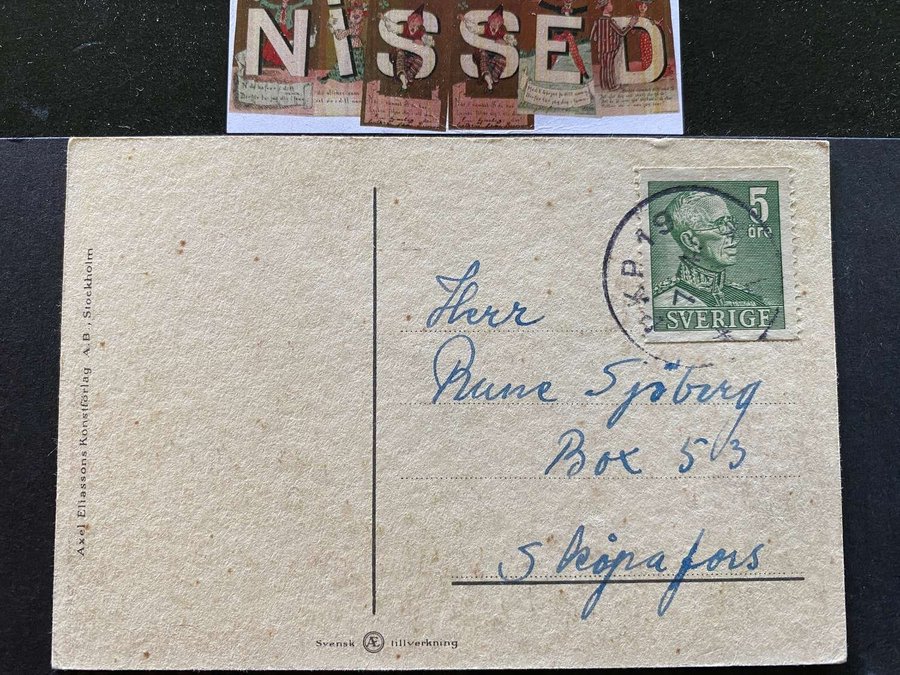 NISSED
5
öre
SVERIGE
PKP. 19
7
Herr
Rune Sjöberg
Box 53
Sköpafors
Axel Eliassons Konstförlag A.B., Stockholm
Svensk Æ tillverkning